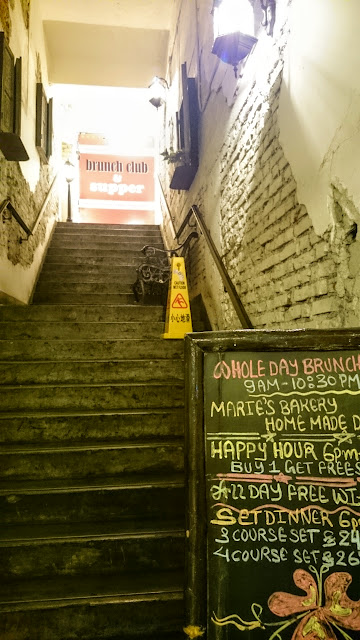 brunch club
&
supper
CAUTION
小心地滑
WHOLE DAY BRUNCH
9AM-10:30PM
MARIE'S BAKERY
HOME MADE D
HAPPY HOUR 6pm-
BUY 1 GET FREE
ALL DAY FREE WI
SET DINNER 6p
3 COURSE SET $24
4 COURSE SET $26